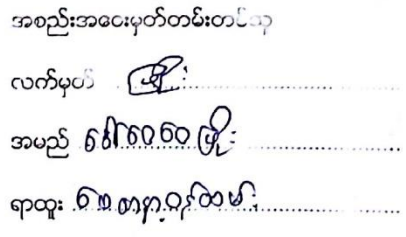 အစည်းအဝေးမှတ်တမ်းတင်သူ
လက်မှတ် ဖြိုး
အမည် ဒေါ်ဝေဝေဖြိုး
ရာထူး စေတနာ့ဝန်ထမ်း